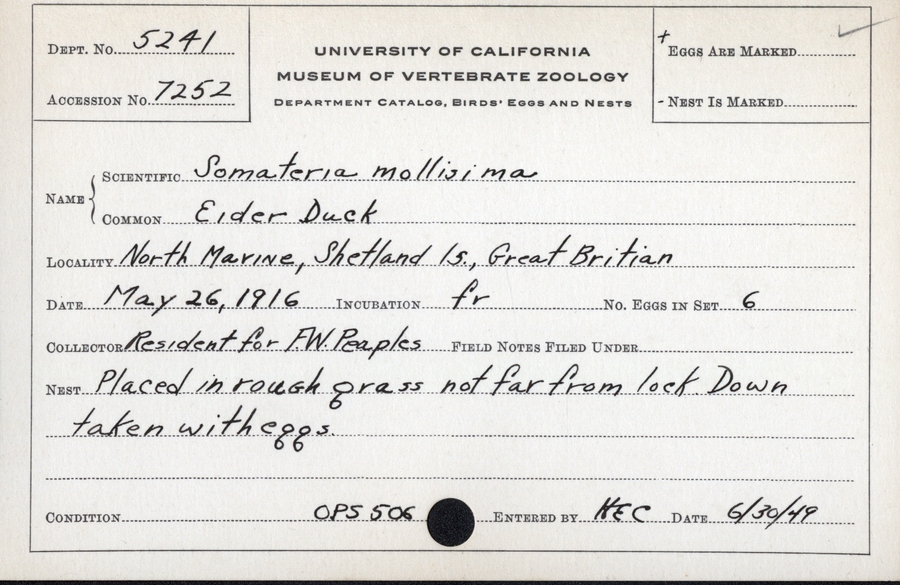 DEPT. NO. 5241
ACCESSION NO. 7252
UNIVERSITY OF CALIFORNIA
MUSEUM OF VERTEBRATE ZOOLOGY
DEPARTMENT CATALOG, BIRDS' EGGS AND NESTS
+ EGGS ARE MARKED
- NEST IS MARKED
NAME
SCIENTIFIC Somateria mollisima
COMMON Eider Duck
LOCALITY North Marine, Shetland Is., Great Britian
DATE May 26, 1916 INCUBATION fr NO. EGGS IN SET 6
COLLECTOR Resident for F.W. Peaples FIELD NOTES FILED UNDER
NEST Placed in rough grass not far from lock. Down
taken with eggs.
CONDITION OPS 506 ENTERED BY HEC DATE 6/30/49